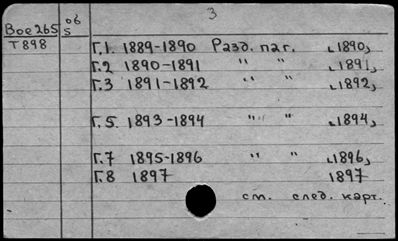 3
Вое265 об
Т898 5
Г.1. 1889-1890 Разд. паг. „1890„
Г.2 1890-1891 " " „1891„
Г.3 1891-1892 " " „1892„
Г.5. 1893-1894 " " „1894„
Г.7 1895-1896 " " „1896„
Г.8 1897 1897
см. след. карт.